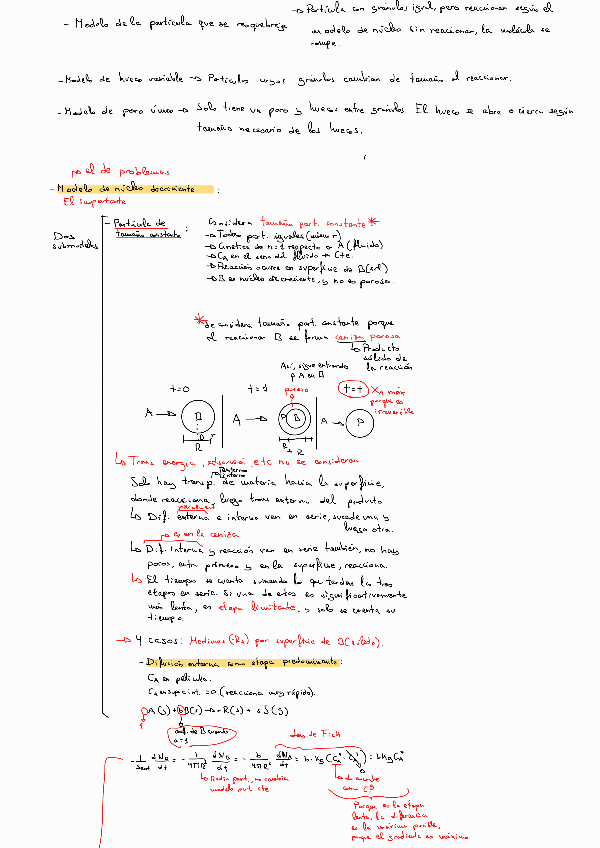 → Partícula con gránulos igual, pero reaccionan según el
- Modelo de la partícula que se resquebraja
modelo de núcleo sin reaccionar, la molécula se
rompe.
- Modelo de hueco variable → Partículas cuyos gránulos cambian de tamaño al reaccionar.
- Modelo de poro único → Solo tiene un poro y huecos entre gránulos El hueco se abre o cierra según
tamaño necesario de los huecos.
el de problemas
- Modelo de núcleo decreciente :
El importante
Dos
submodelos
- Partícula de
tamaño constante :
Considera tamaño part. constante *
→ Todas part. iguales (mismo r)
→ Cinética de n=1 respecto a A (fluido)
→ CA en el seno del fluido → Cte.
→ Reacción ocurre en superficie de B(sol)
→ B es núcleo decreciente, y no es poroso.
* Se considera tamaño part. constante porque
al reaccionar B se forma ceniza porosa
↳ Producto
sólido de
la reacción
Así, sigue entrando
A en B
t=0
t=1
poroso
t=t
XA máx
porque es
irreversible
A → B
A → P B
A → P
R
R
↳ Trans energía, adsorción, etc no se consideran
externa
e interna
Solo hay transp. de materia hacia la superficie,
donde reacciona, luego trans externa del producto
↳ Dif. externa e interna van en serie, sucede una y
luego otra.
es en la ceniza
↳ Dif. Interna y reacción van en serie también, no hay
poros, entra primero y en la superficie, reacciona.
↳ El tiempo se cuenta sumando lo que tardan las tres
etapas en serie. Si una de ellas es significativamente
más lenta, es etapa limitante, y solo se cuenta su
tiempo.
→ 4 casos: Medimos (Rs) por superficie de B(sólido).
- Difusión externa como etapa predominante:
CA en película.
CA en sup. int. = 0 (reacciona muy rápido).
aA(g) + bB(s) → rR(s) + sS(g)
1
coef. de B cuando
a=1
Ley de Fick
- 1/Sext dNB/dt = - 1/4πR² dNB/dt = - b/4πR² dNA/dt = b·kg(CA - CA) = b kg CA
0
↳ Radio part., no cambia
modelo part. cte
Porque es la etapa
lenta, la diferencia
es la máxima posible,
porque el gradiente es máximo